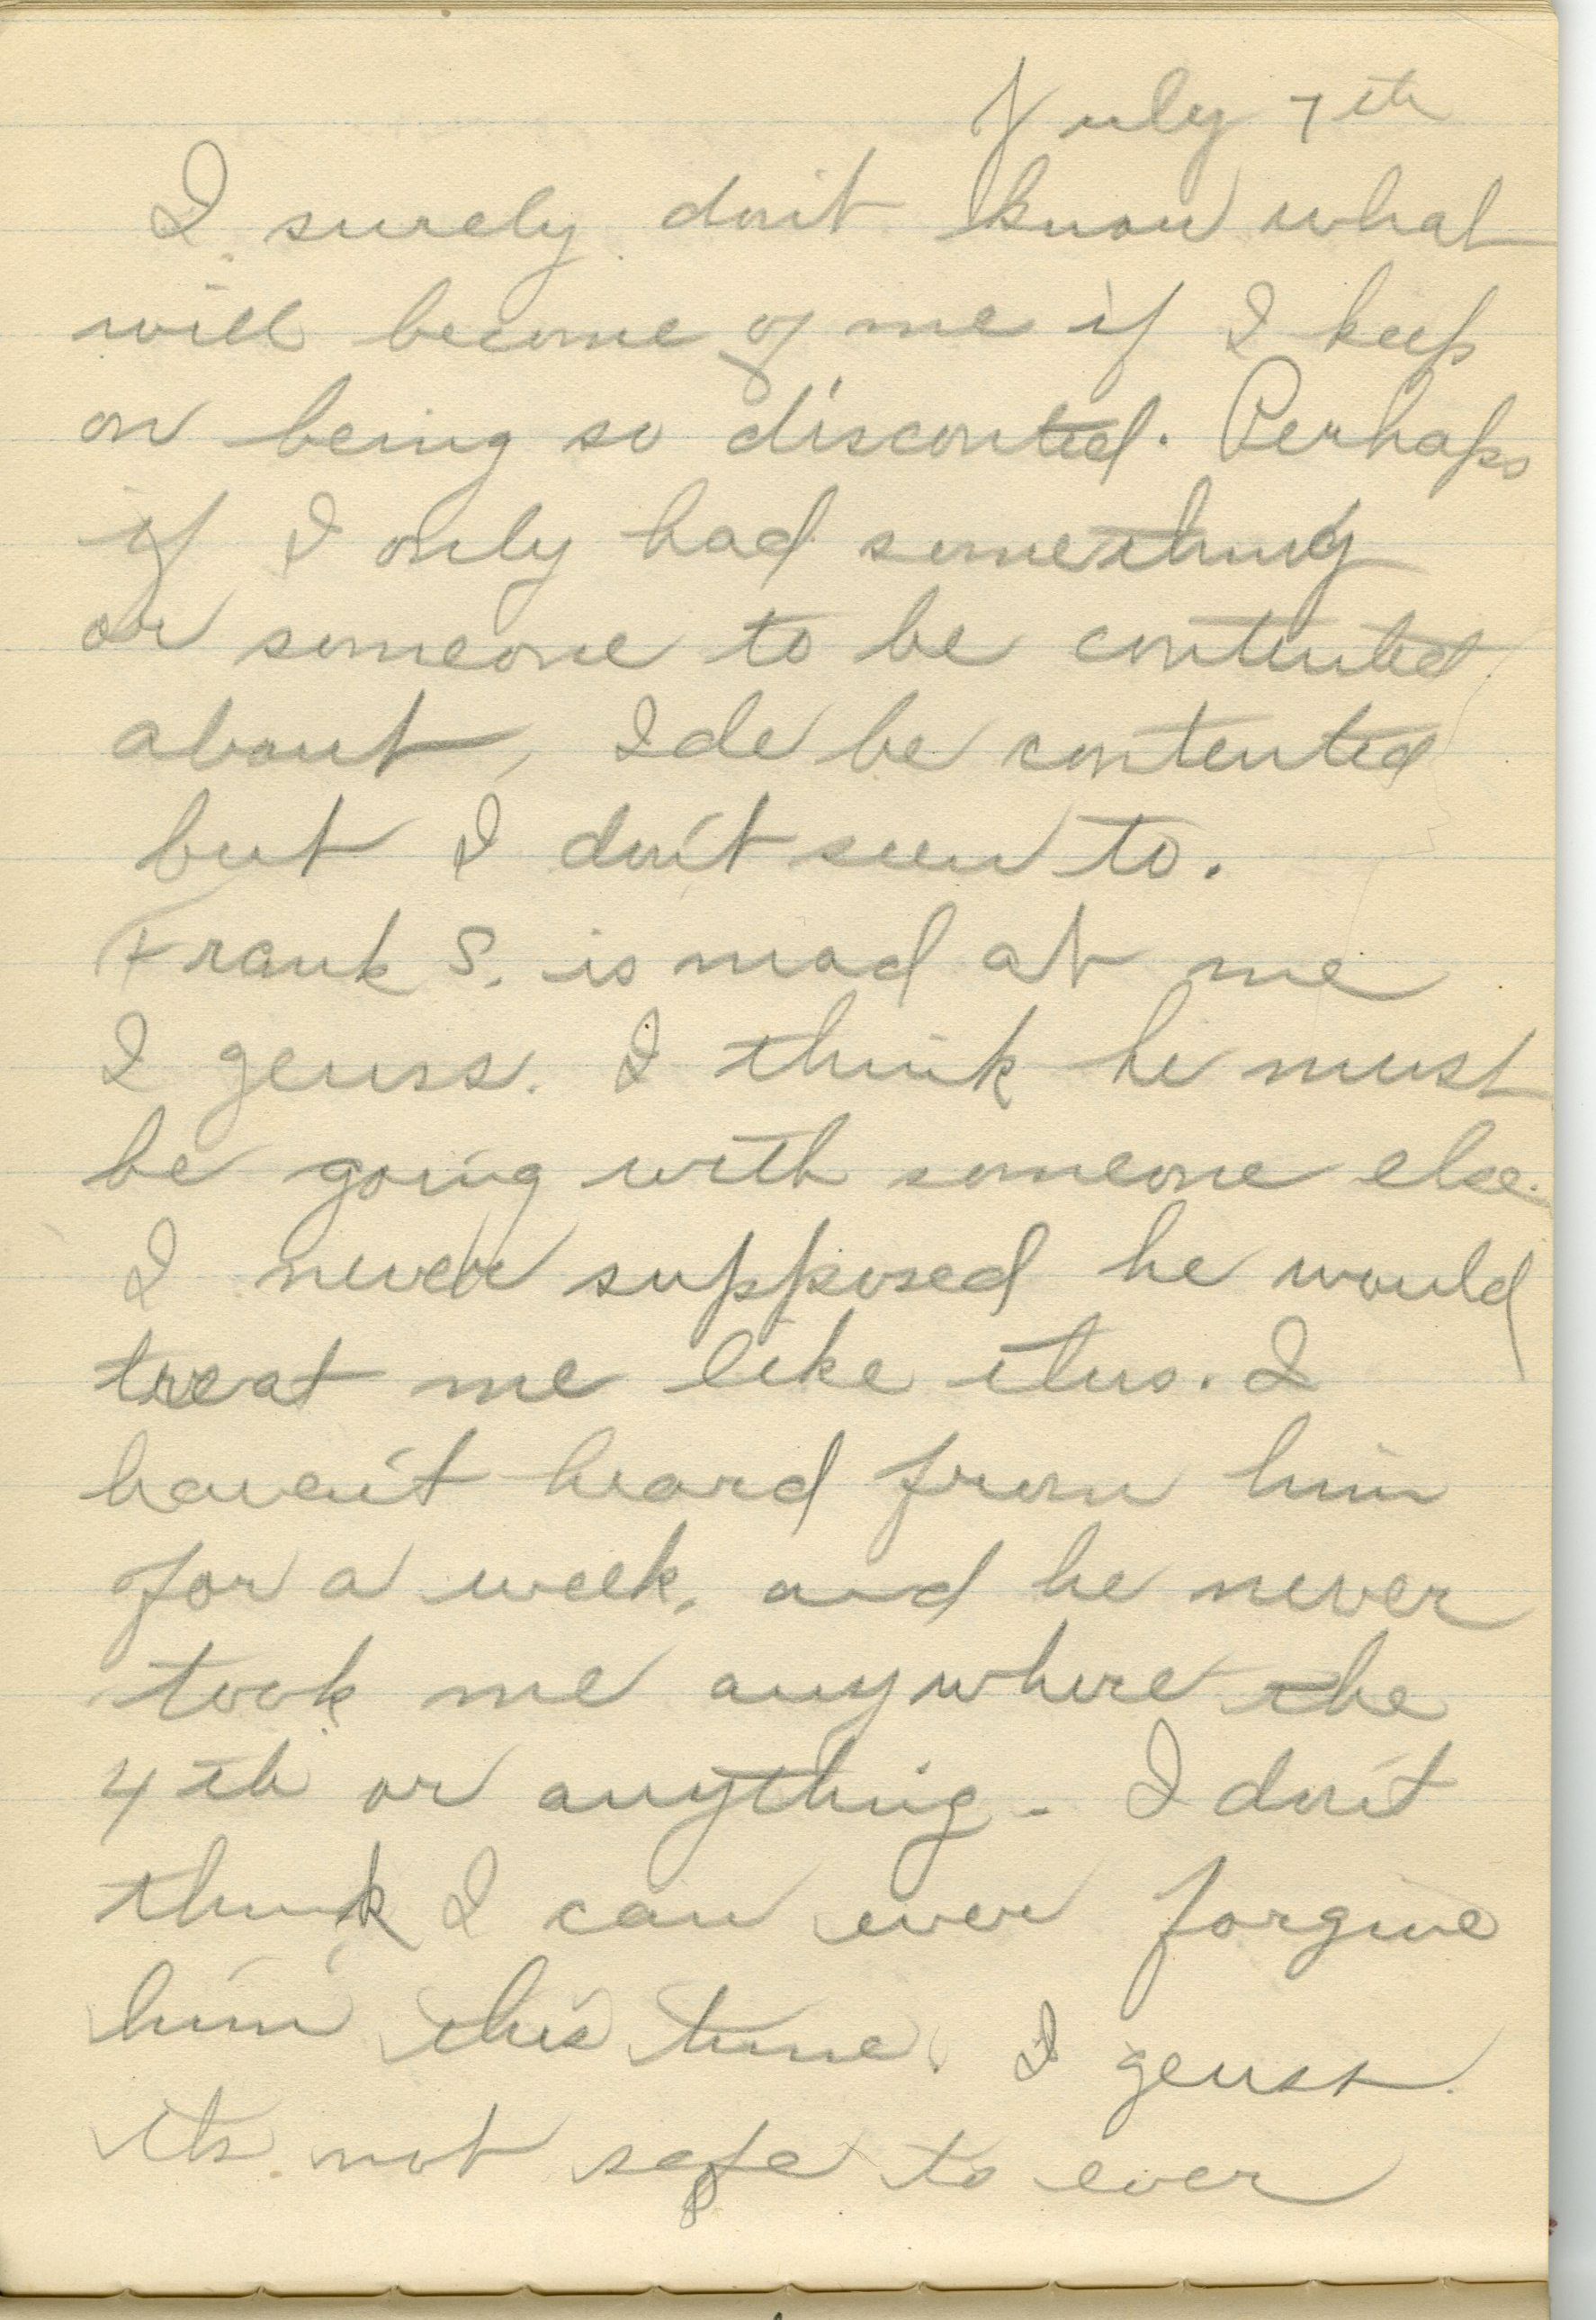 July 7th
I surely don't know what
will become of me if I keep
on being so disconted. Perhaps
if I only had something
or someone to be contented
about, Ide be contented
but I don't seem to.
Frank S. is mad at me
I geuss. I think he must
be going with someone else.
I never supposed he would
treat me like this. I
haven't heard from him
for a week, and he never
took me anywhere the
4th or anything. I don't
think I can ever forgive
him this time. I geuss
its not safe to ever